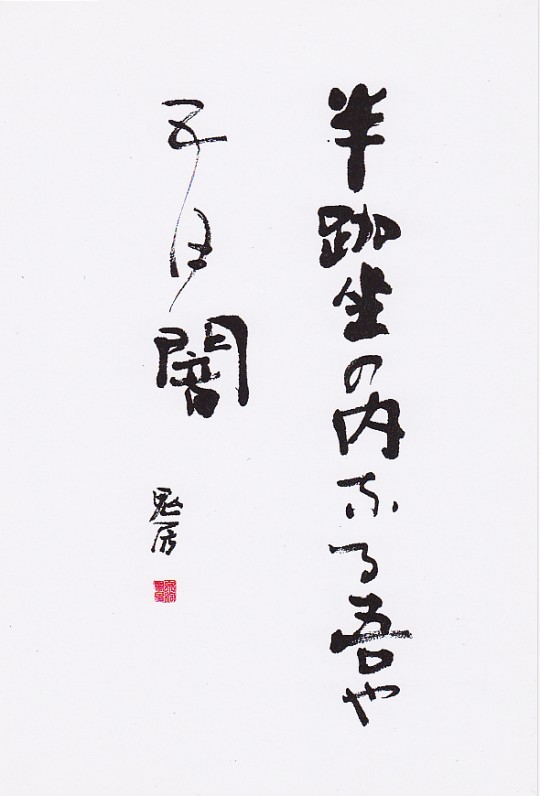 半跏坐の内なる吾や
五月闇
鬼房